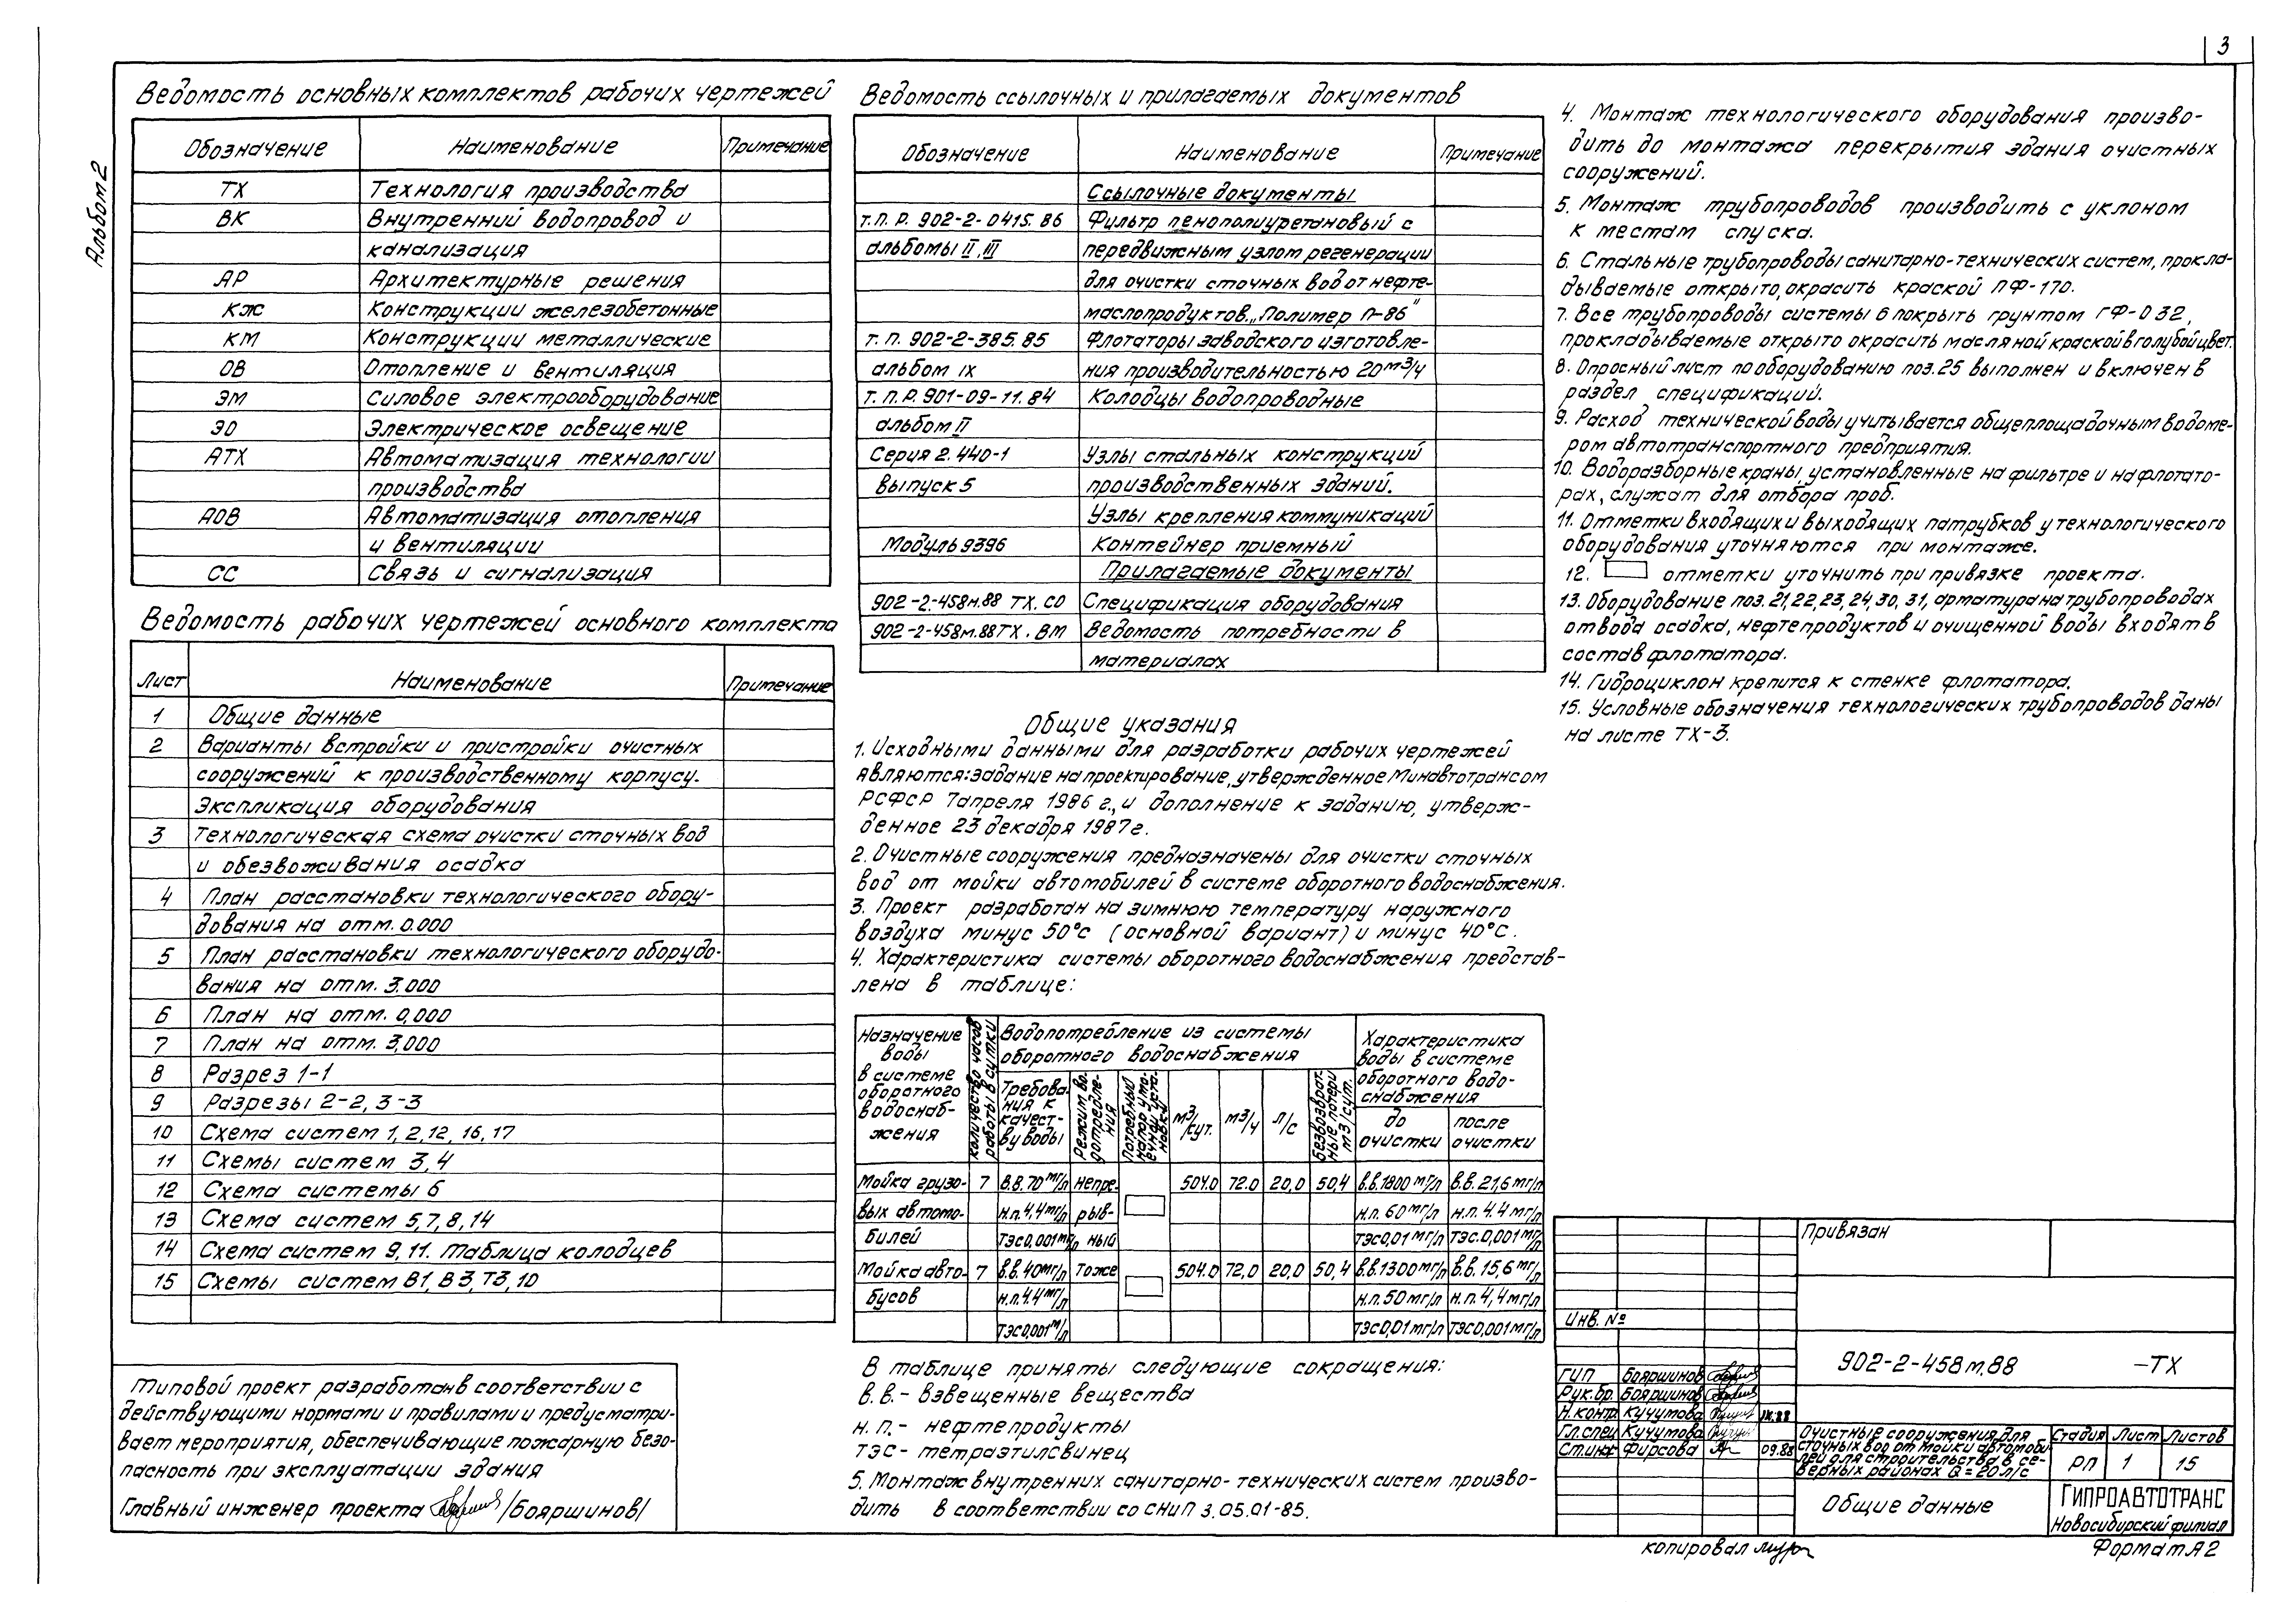 3
Альбом 2
Ведомость основных комплектов рабочих чертежей
Обозначение Наименование Примечание
ТХ Технология производства
ВК Внутренний водопровод и
канализация
АР Архитектурные решения
КЖ Конструкции железобетонные
КМ Конструкции металлические
ОВ Отопление и вентиляция
ЭМ Силовое электрооборудование
ЭО Электрическое освещение
АТХ Автоматизация технологии
производства
АОВ Автоматизация отопления
и вентиляции
СС Связь и сигнализация
Ведомость рабочих чертежей основного комплекта
Лист Наименование Примечание
1 Общие данные
2 Варианты встройки и пристройки очистных
сооружений к производственному корпусу.
Экспликация оборудования
3 Технологическая схема очистки сточных вод
и обезвоживания осадка
4 План расстановки технологического обору-
дования на отм. 0.000
5 План расстановки технологического оборудо-
вания на отм. 3.000
6 План на отм. 0,000
7 План на отм. 3,000
8 Разрез 1-1
9 Разрезы 2-2, 3-3
10 Схема систем 1, 2, 12, 16, 17
11 Схемы систем 3,4
12 Схема системы 6
13 Схема систем 5,7,8,14
14 Схема систем 9, 11. Таблица колодцев
15 Схемы систем В1, В3, Т3, 10
Типовой проект разработан в соответствии с
действующими нормами и правилами и предусматри-
вает мероприятия, обеспечивающие пожарную безо-
пасность при эксплуатации здания
Главный инженер проекта /Бояршинов/
Ведомость ссылочных и прилагаемых документов
Обозначение Наименование Примечание
Ссылочные документы
т.п.р. 902-2-0415.86 Фильтр пенополиуретановый с
альбомы II, III передвижным узлом регенерации
для очистки сточных вод от нефте-
маслопродуктов „Полимер П-86"
т. п. 902-2-385.85 Флотаторы заводского изготовле-
альбом IX ния производительностью 20 м3/ч
т. п.р. 901-09-11.84 Колодцы водопроводные
альбом II
Серия 2.440-1 Узлы стальных конструкций
выпуск 5 производственных зданий.
Узлы крепления коммуникаций
Модуль 9396 Контейнер приемный
Прилагаемые документы
902-2-458м.88 ТХ. СО Спецификация оборудования
902-2-458м.88 ТХ. ВМ Ведомость потребности в
материалах
Общие указания
1. Исходными данными для разработки рабочих чертежей
являются: задание на проектирование, утвержденное Минавтотрансом
РСФСР 7апреля 1986 г., и дополнение к заданию, утверж-
денное 23 декабря 1987 г.
2. Очистные сооружения предназначены для очистки сточных
вод от мойки автомобилей в системе оборотного водоснабжения.
3. Проект разработан на зимнюю температуру наружного
воздуха минус 50°С (основной вариант) и минус 40°С.
4. Характеристика системы оборотного водоснабжения представ-
лена в таблице:
Назначение воды в системе оборотного водоснаб-жения
Количество часов работы в сутки
Водопотребление из системы
оборотного водоснабжения
Требова-ния к качест-ву воды
Режим во-допотребле-ния
Потребный напор у мо-ечной уста-новки
м3/сут. м3/ч л/с
Безвозврат-ные потери м3/сут.
Характеристика
воды в системе
оборотного водо-
снабжения
до очистки после очистки
Мойка грузо- 7 в.в. 70 мг/л непре- 504.0 72.0 20,0 50,4 в.в.1800 мг/л в.в. 21,6 мг/л
вых автомо- н.п.4,4мг/л рыв- н.п. 60мг/л н.п. 4.4 мг/л
билей ТЭС0,001мг/л ный ТЭС0,01 мг/л ТЭС.0,001 мг/л
Мойка авто- 7 в.в. 40мг/л то же 504.0 72,0 20,0 50,4 в.в.1300мг/л в.в. 15,6 мг/л
бусов н.п.4.4 мг/л н.п. 50 мг/л н.п. 4,4мг/л
ТЭС0,001 м/л ТЭС0,01 мг/л ТЭС0,001 мг/л
В таблице приняты следующие сокращения:
в.в.- взвешенные вещества
н.п.- нефтепродукты
ТЭС- тетраэтилсвинец
5. Монтаж внутренних санитарно-технических систем произво-
дить в соответствии со СНиП 3.05.01-85.
4. Монтаж технологического оборудования произво-
дить до монтажа перекрытия здания очистных
сооружений.
5. Монтаж трубопроводов производить с уклоном
к местам спуска.
6. Стальные трубопроводы санитарно-технических систем, прокла-
дываемые открыто, окрасить краской ПФ-170.
7. Все трубопроводы системы 6 покрыть грунтом ГФ-032,
прокладываемые открыто окрасить масляной краской в голубой цвет.
8. Опросный лист по оборудованию поз.25 выполнен и включен в
раздел спецификаций.
9. Расход технической воды учитывается общеплощадочным водоме-
ром автотранспортного предприятия.
10. Водоразборные краны, установленные на фильтре и на флотато-
рах, служат для отбора проб.
11. Отметки входящих и выходящих патрубков у технологического
оборудования уточняются при монтаже.
12. отметки уточнить при привязке проекта.
13. Оборудование поз. 21, 22, 23, 24, 30, 31, арматура на трубопроводах
отвода осадка, нефтепродуктов и очищенной воды входят в
состав флотатора.
14. Гидроциклон крепится к стенке флотатора.
15. Условные обозначения технологических трубопроводов даны
на листе ТХ-3.
Привязан
Инв. №
902-2-458м.88 -ТХ
ГИП Бояршинов
Рук.бр. Бояршинов
Н.контр. Кучумова
Гл.спец Кучумова
Ст.инж Фирсова 09.88
Очистные сооружения для
сточных вод от мойки автомоби-
лей для строительства в се-
верных районах Q = 20 л/с
Стадия Лист Листов
РП 1 15
Общие данные
ГИПРОАВТОТРАНС
Новосибирский филиал
копировал
Формат А2